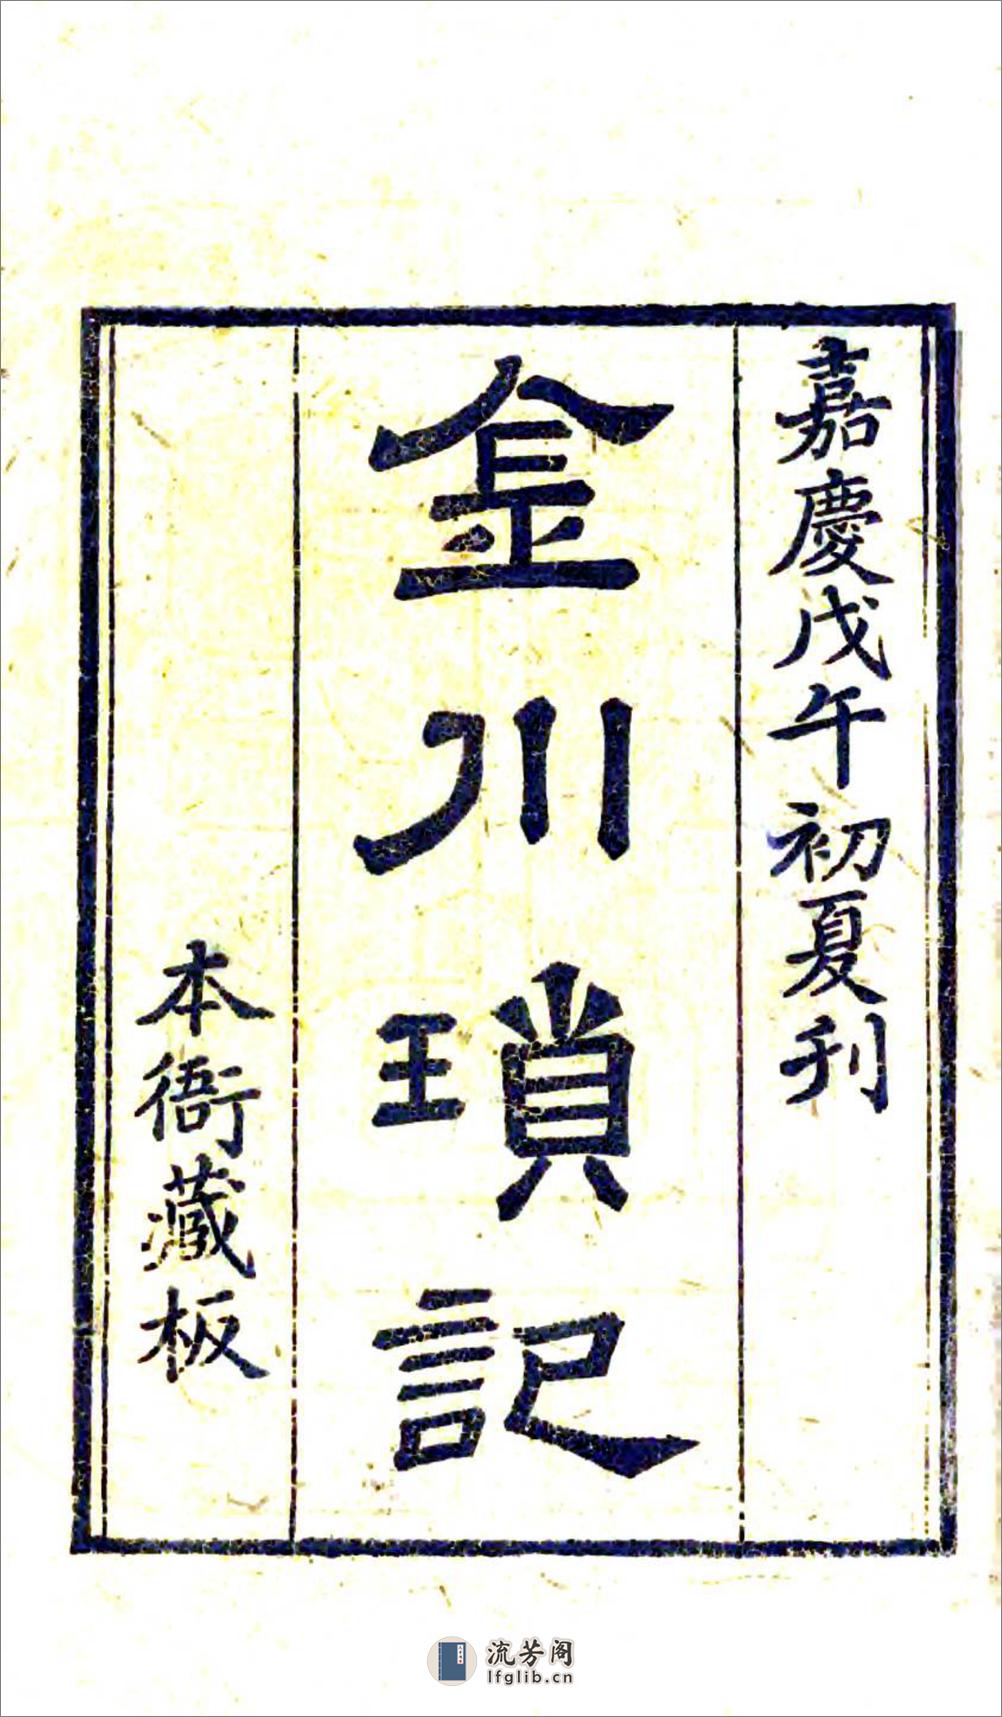 嘉慶戊午初夏刋
金川瑣記
本衙藏板
流芳阁
lfglib.cn